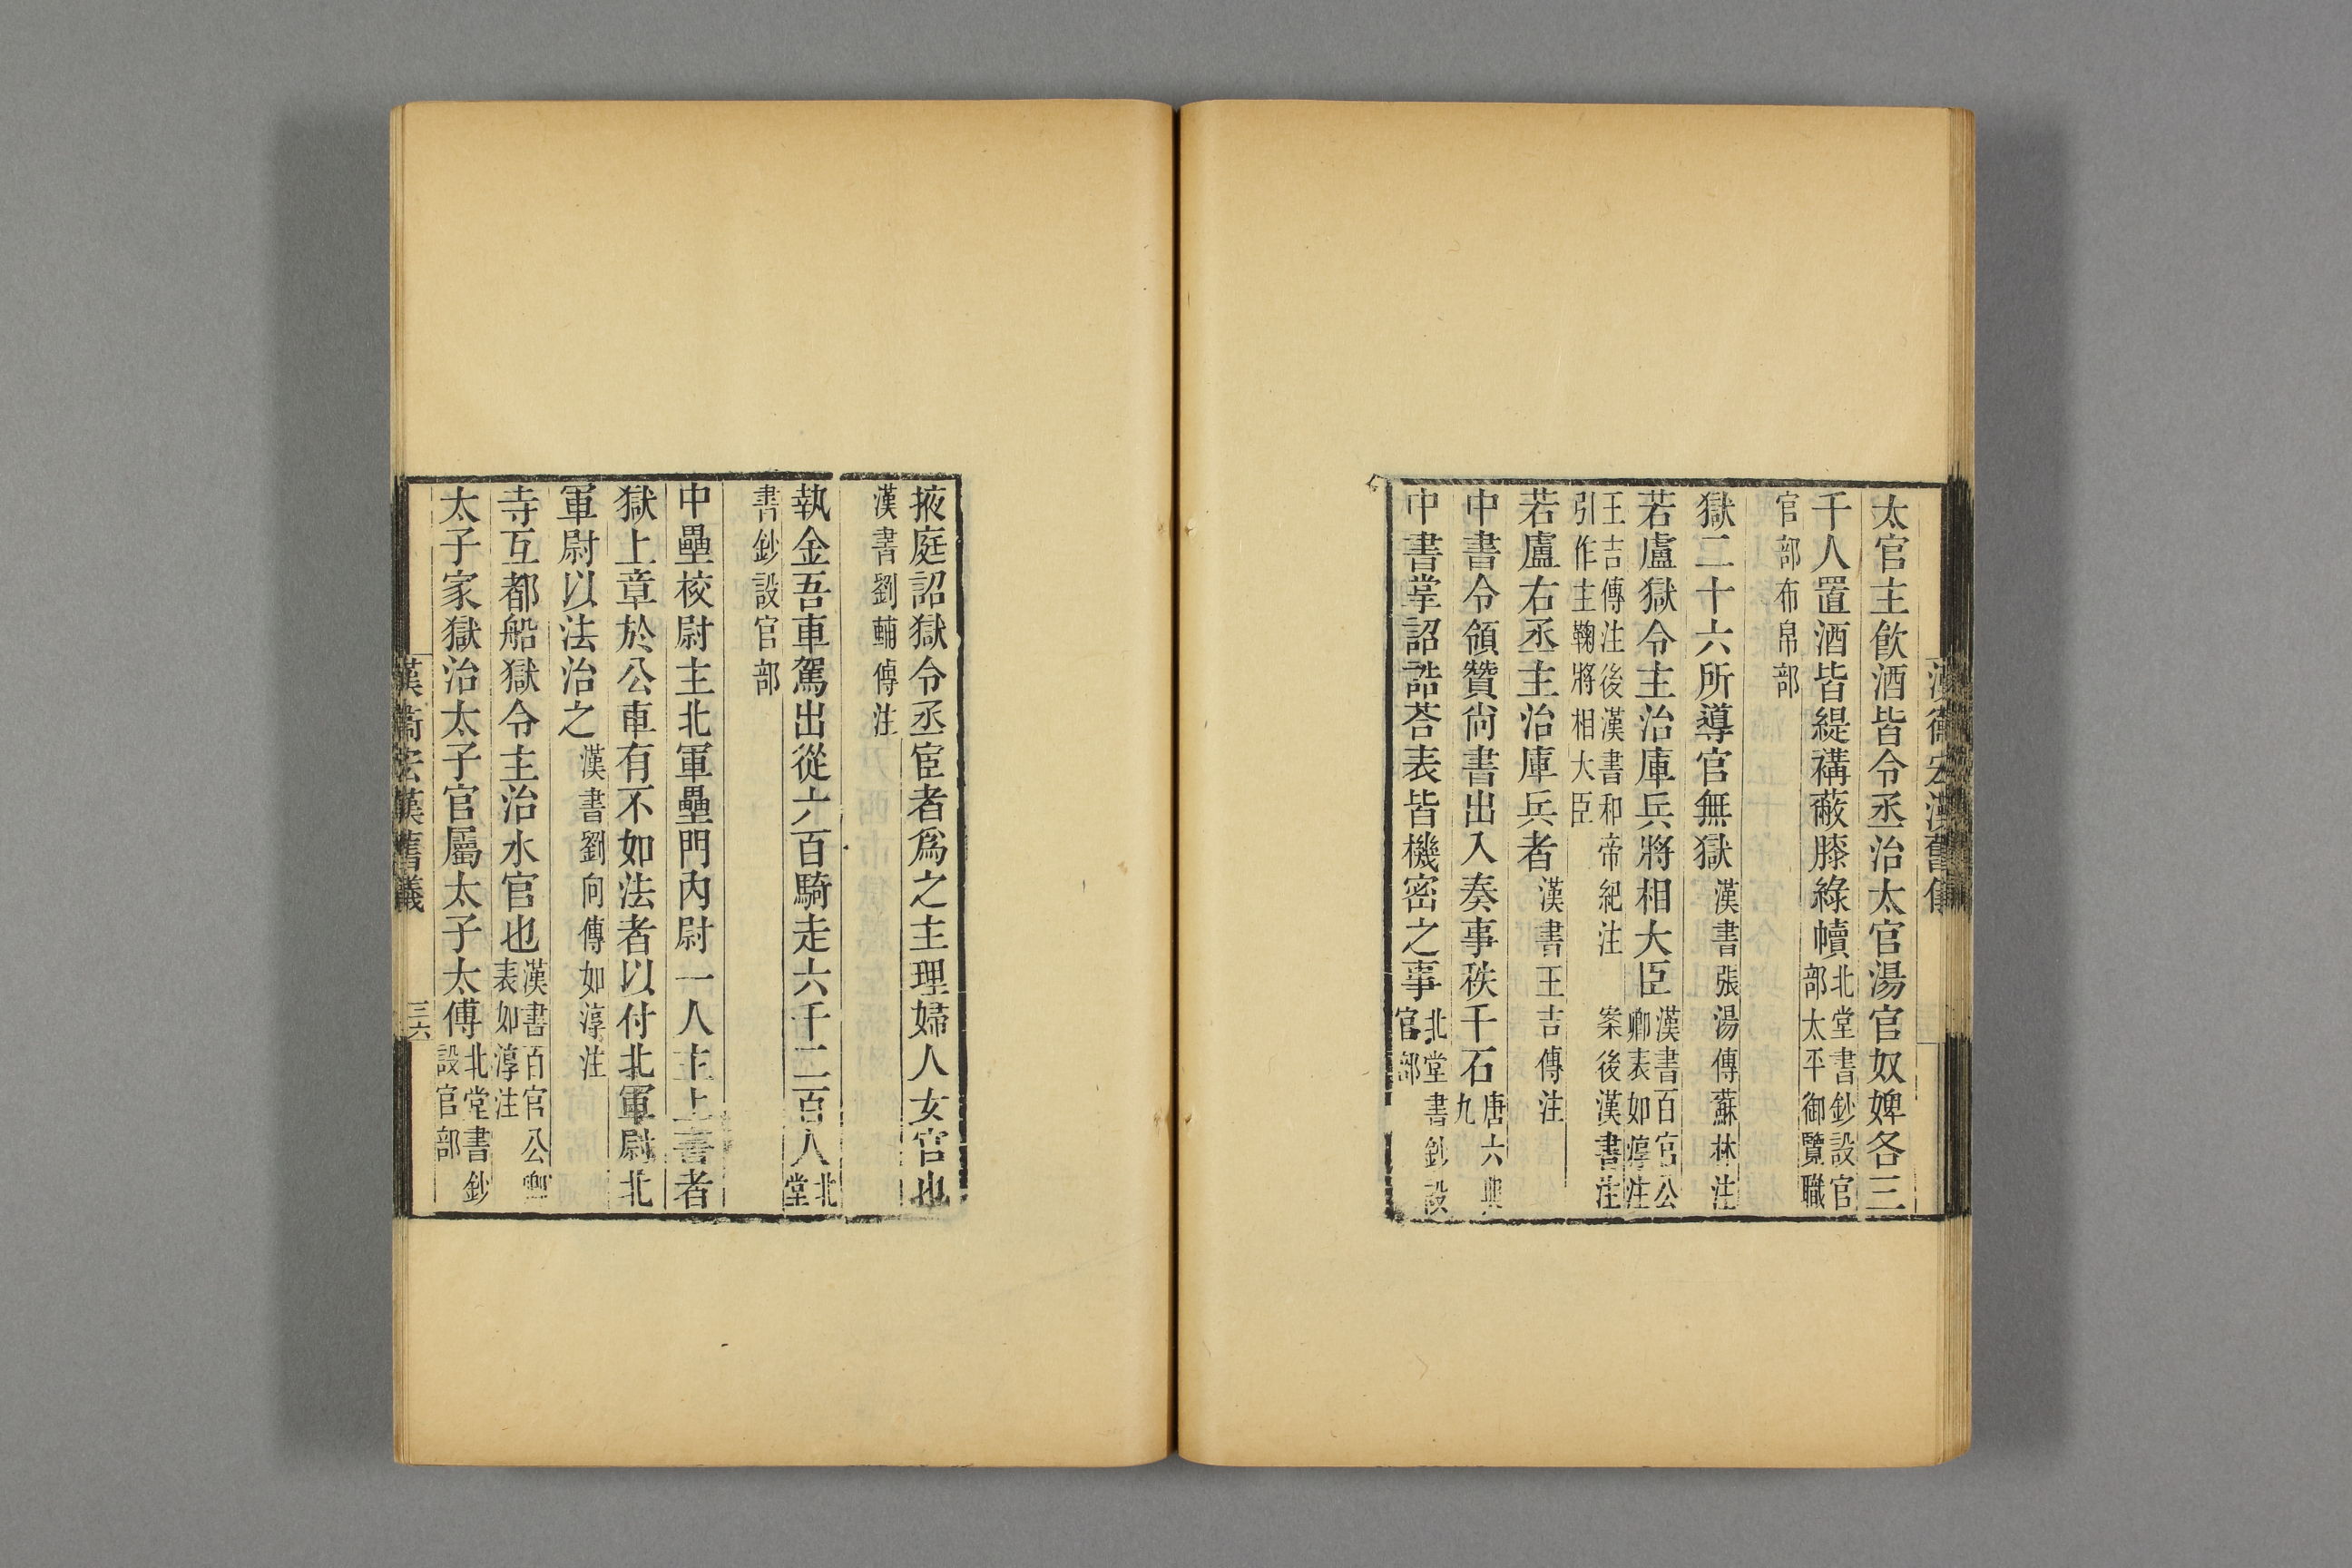 漢衞宏漢舊儀
太官主飲酒皆令丞治太官湯官奴婢各三
千人置酒皆緹褠蔽膝綠幘北堂書鈔設官部太平御覽職
官部布帛部
獄二十六所導官無獄漢書張湯傳蘇林注
若盧獄令主治庫兵將相大臣漢書百官公卿表如淳注
王吉傳注後漢書和帝紀注 案後漢書注引作主鞠將相大臣
若盧右丞主治庫兵者漢書王吉傳注
中書令領贊尙書出入奏事秩千石唐六典九
中書掌詔誥荅表皆機密之事北堂書鈔設官部
掖庭詔獄令丞宦者爲之主理婦人女官也
漢書劉輔傳注
執金吾車駕出從六百騎走六千二百人北堂
書鈔設官部
中壘校尉主北軍壘門內尉一人主上書者
獄上章於公車有不如法者以付北軍尉北
軍尉以法治之漢書劉向傳如淳注
寺互都船獄令主治水官也漢書百官公卿表如淳注
太子家獄治太子官屬太子太傅北堂書鈔設官部
漢衞宏漢舊儀
三六